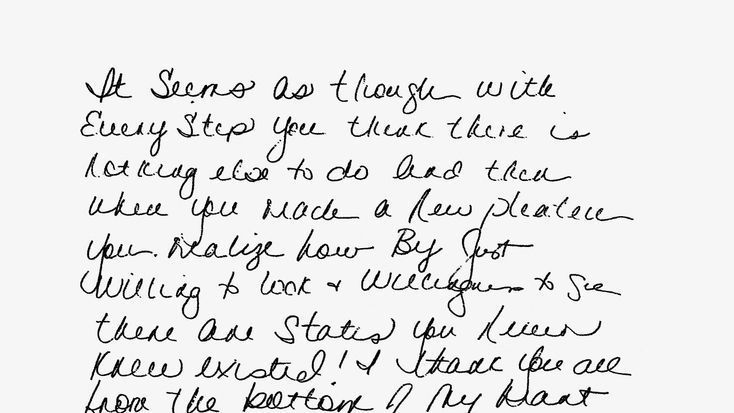 It Seems as though with
Every Step you think there is
nothing else to do and then
when you reach a new plateau
you realize how By Just
Willing to look & Willingness to See
there are States you never
knew existed! I thank you all
from the bottom of My heart